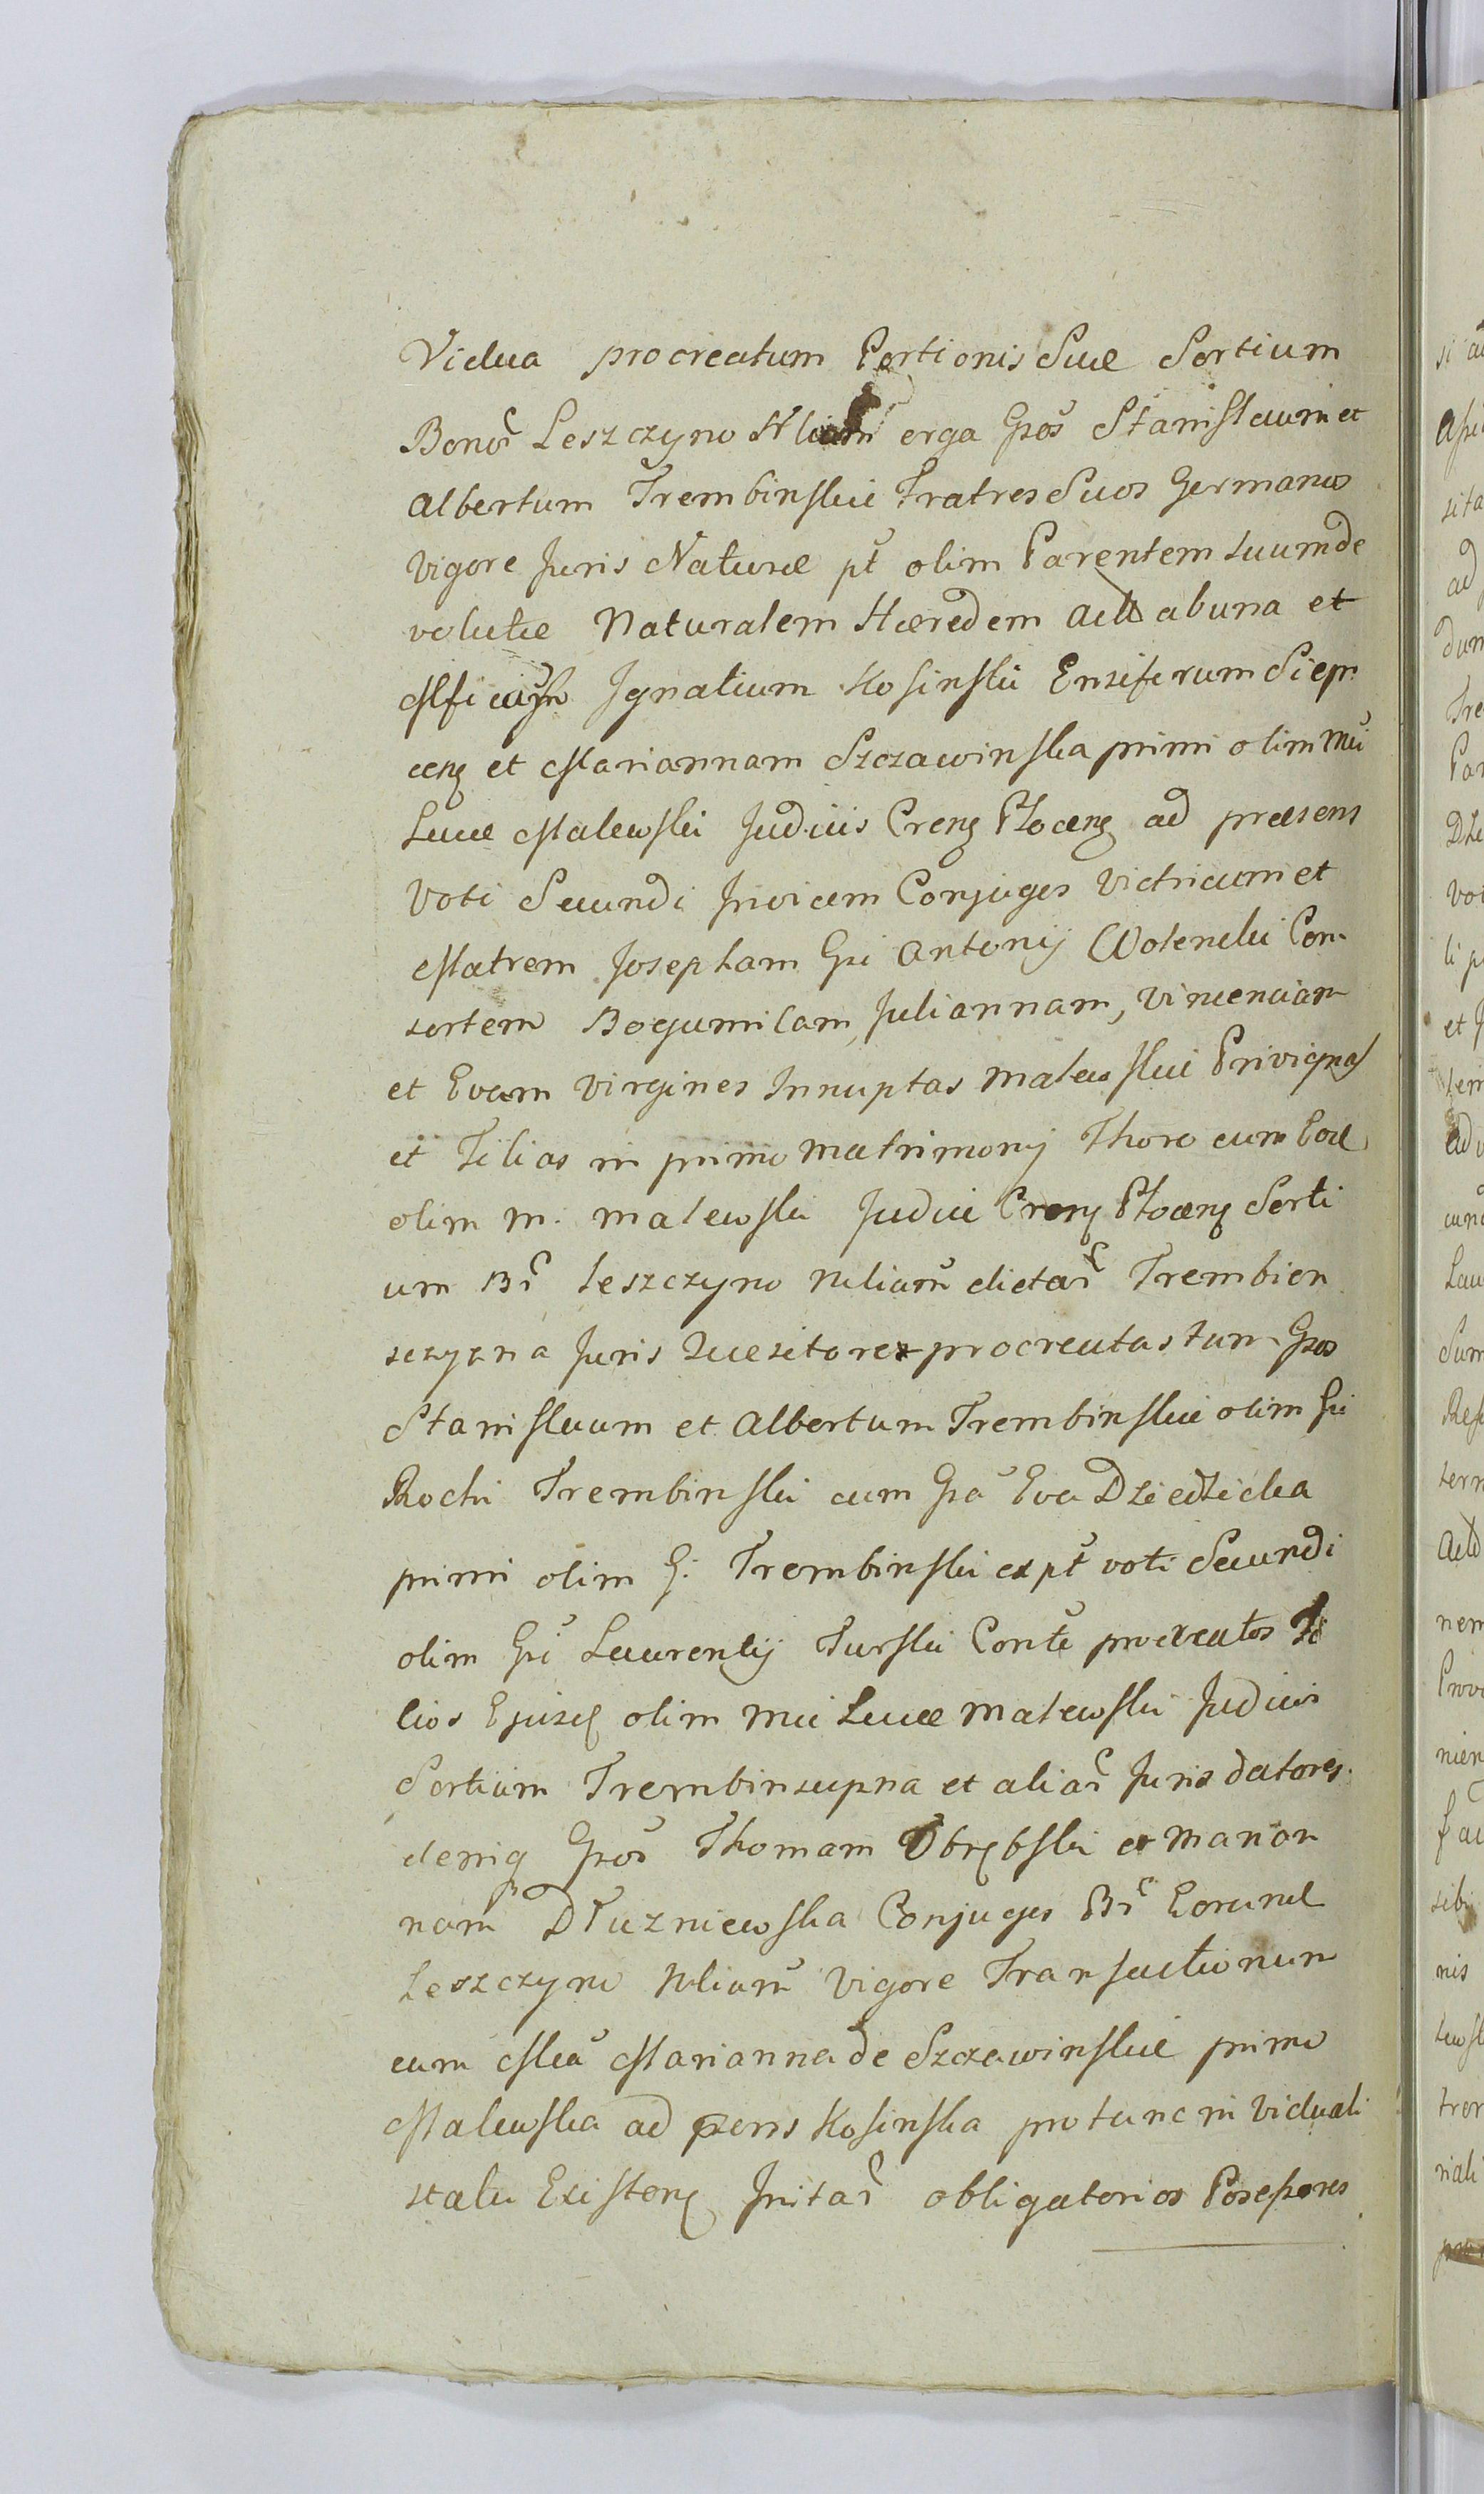 Vidua procreatum Portionis Suæ Sortium
Bonor Leszczyno erga Gsos Stanislaum et
Albertum Trembinskie Fratres Suos Germanos
vigore Juris Naturæ pt olim Parentem suum de
volutæ Naturalem Hæredem ab una et
Ignatium Kosinski Ensiferum Siepr
cens et Mariannam Szczawinska primi olim Mci
Lucæ Malewski Judicis Crens Płocens ad præsens
Voti Secundi Invicem Conjuges Victricum et
Matrem Josepham Gsi Antonij Wolencki Con-
sortem Bogumilam, Juliannam, Vincenciam
et Evam Virgines Innuptas Malewskie Privignas
et Filias in primo Matrimonij Thoro cum Eod
olim M. Malewski Judice Crens Płocens Sorti
um Br Leszczyno Nlium dictar Trembien
sczyzna Juris Quesitores procreatas tum Gsos
Stanislaum et Albertum Trembinskie olim Gsi
Rochi Trembinski cum Gsa Eva Dziedzicka
primi olim G: Trembinski ex pt voti Secundi
olim Gsi Laurentij Turski Conte procreatos Fi
lios Ejusd olim Mci Lucæ Malewski Judicis
Sortium Trembinszupna et aliar Juris datores
deniq Gsos Thomam Obrębski et Marian
nam Dłuzniewska Conjuges Br Eorund
Leszczyno Nlium Vigore Transactionum
cum Mca Marianna de Szczawinskie primo
Malewska ad præns Kosinska pro tunc in Viduali
statu Existens Initar obligatorios Possessores